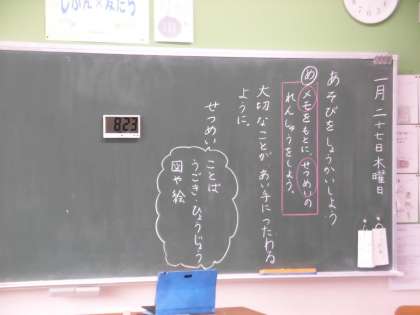 一月二十七日木曜日
あそびをしょうかいしよう
め メモをもとに、せつめいの
れんしゅうをしよう。
大切なことが あい手につたわる
ように。
せつめい
ことば
うごき ひょうじょう
図や絵
8:23